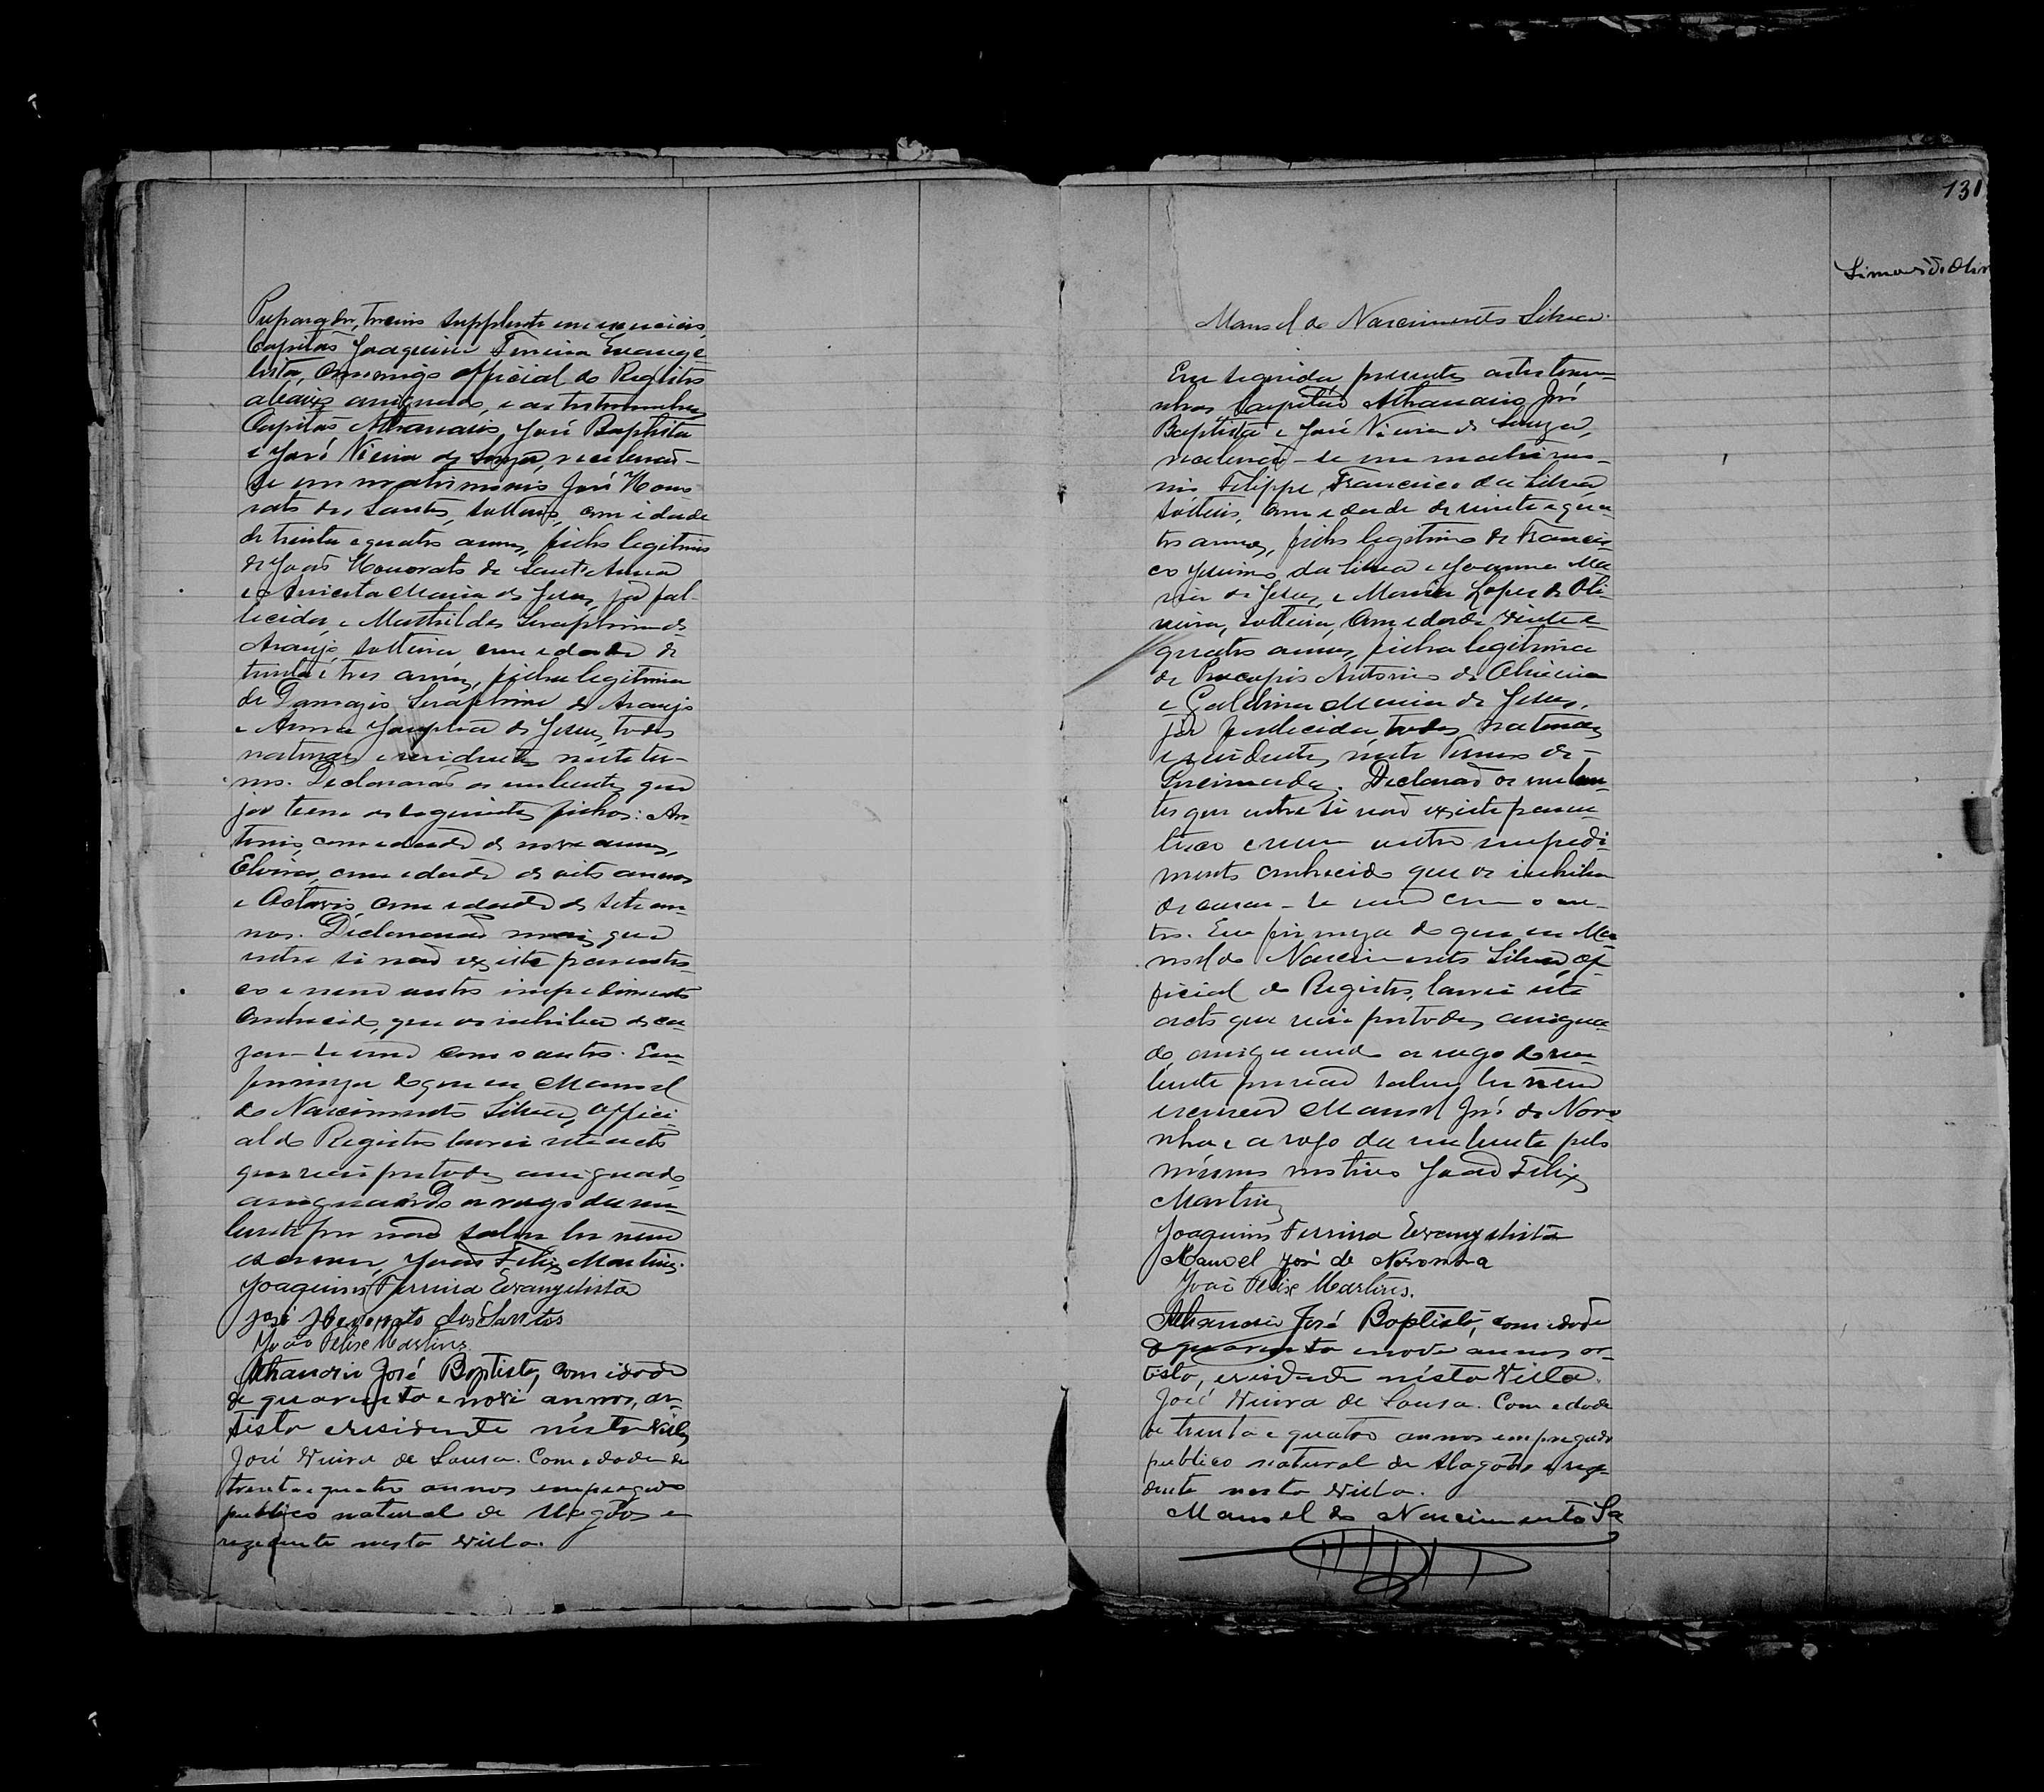 Preparador, terceiro supplente em exercicio,
Capitão Joaquim Ferreira Evange-
lista, commigo official do Registro
abaixo assignado, e as testemunhas
Capitão Athanasio José Baptista
e José Vieira de Souza, receberão-
se em matrimonio José Hono
rato dos Santos, solteiro, com idade
de trinta e quatro annos, filho legitimo
de João Honorato de Sant'Anna
e Maria de Jesus, já fal-
lecidos, e Mathildes Seraphina de
Araujo, solteira com edade de
trinta e tres annos, filha legitima
de Damazio Seraphim de Araujo
e Anna Josepha de Jesus, todos
naturaes e residentes neste ter-
mo. Declararão os nubentes que
já teem os seguintes filhos: An
tonio, com edade de nove annos,
Elvira, com edade de oito annos
e Octavio com edade de sete an-
nos. Declararão mais que
entre si não existe parentes-
co e nem outro impedimento
conhecido, que os inhiba de ca-
zar-se um com o outro. Em
firmeza do que eu Manoel
do Nascimento Silva, offici-
al do Registro lavrei este acto
que vai por todos assignado,
assignando a rogo da nu-
bente por não saber ler nem
escrever, João Felix Martins.
Joaquim Ferreira Evangelista
José Honorato dos Santos
João Felix Martins
Athanasio José Baptista, com idade
de quarenta e nove annos, ar-
tista e residente nesta Villa
José Vieira de Sousa. Com edade de
trenta e quatro annos empregado
publico natural de Alagôas e
rezidente nesta villa.
131
Simão de Oliv
Manoel do Nascimento Silva.
Em seguida, presentes as testemu-
nhas Capitão Athanasio José
Baptista e José Vieira de Souza,
receberão-se em matrimo-
nio Felippe Francisco da Silva
solteiro, com edade de vinte e qua
tro annos, filho legitimo de Francis-
co da Silva e Joanna Ma
ria de Jesus, e Maria Lopes de Oli-
veira, solteira, com edade vinte e
quatro annos, filha legitima
de Procopio Antonio de Oliveira
e Galdina Maria de Jesus,
já fallecida, todos naturaes
e residentes neste Termo de
Declarão os nuben-
tes que entre si não existe paren-
tesco e nem outro impedi-
mento conhecido que os inhiba
de cazar-se um com o ou-
tro. Em firmeza do que eu Ma
noel do Nascimento Silva, of
ficial do Registro, lavrei este
acto que vai por todos assigna-
do assignando a rogo do nu-
bente por não saber ler nem
escrever Manoel José de Noro
nha e a rogo da nubente pelo
mesmo motivo João Felix
Martins
Joaquim Ferreira Evangelista
Manoel José de Noronha
João Felix Martins.
Athanasio José Baptista, com edade
de quarenta e nove annos ar-
tista, e residente nesta Villa.
José Vieira de Sousa. Com edade
de trinta e quatro annos empregado
publico natural de Alagôas e rezi-
dente nesta villa.
Manoel do Nascimento Sa